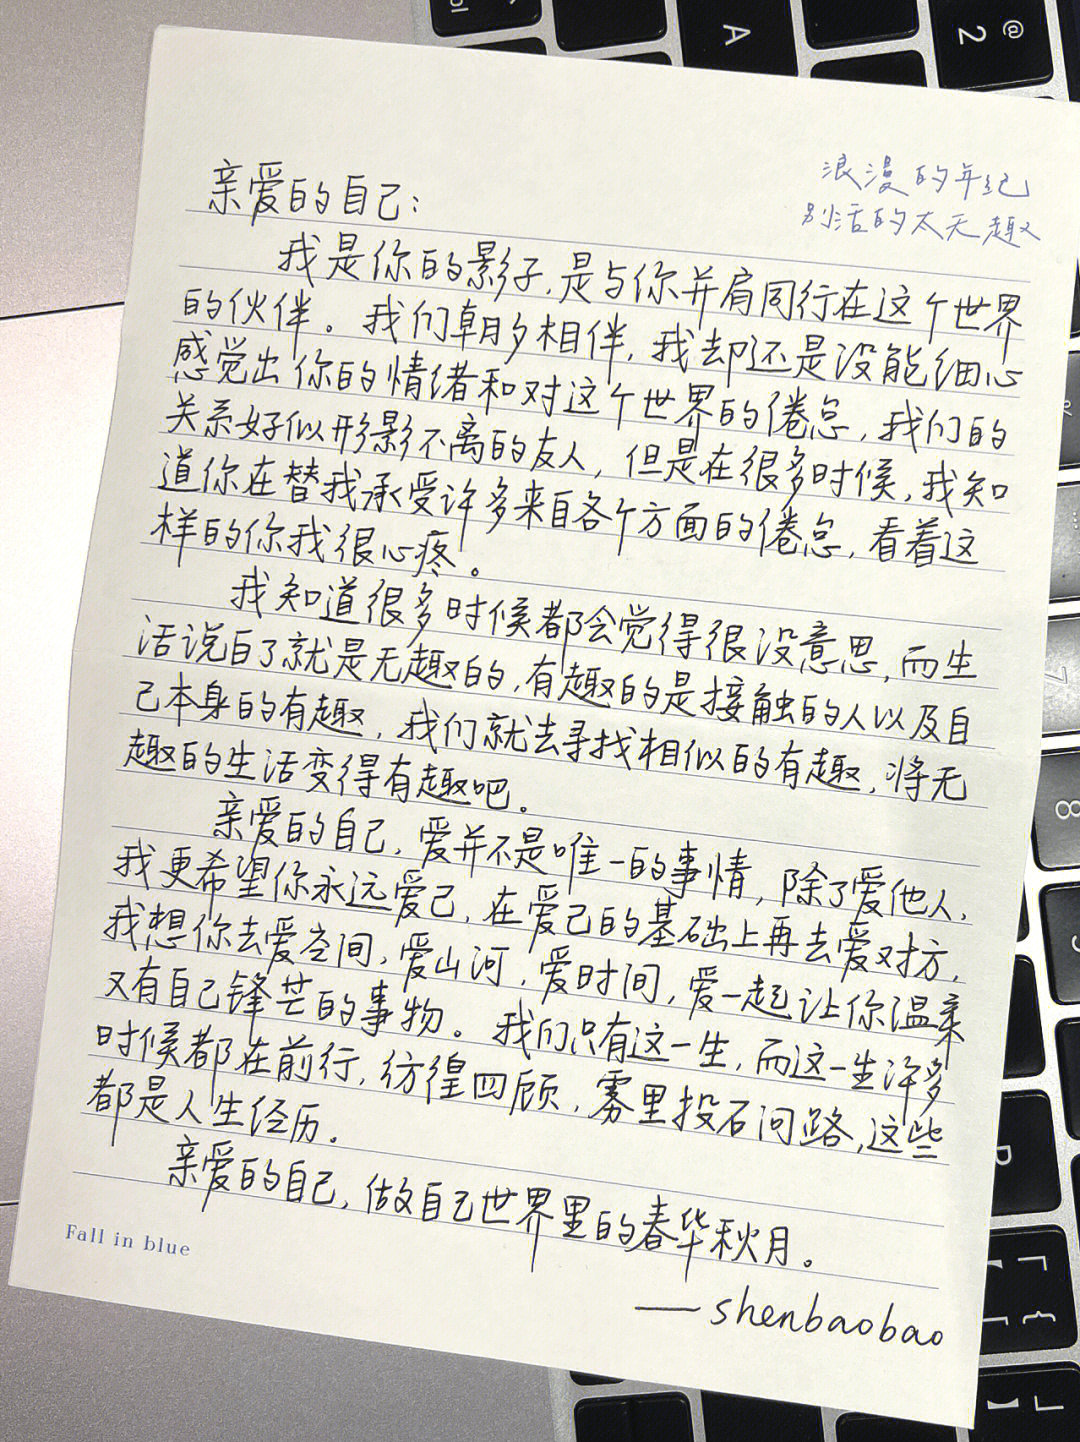 浪漫的年纪
别活的太无趣
亲爱的自己:
我是你的影子,是与你并肩同行在这个世界
的伙伴。我们朝夕相伴,我却还是没能细心
感觉出你的情绪和对这个世界的倦怠,我们的
关系好似形影不离的友人,但是在很多时候,我知
道你在替我承受许多来自各个方面的倦怠,看着这
样的你我很心疼。
我知道很多时候都会觉得很没意思,而生
活说白了就是无趣的,有趣的是接触的人以及自
己本身的有趣,我们就去寻找相似的有趣,将无
趣的生活变得有趣吧。
亲爱的自己,爱并不是唯一的事情,除了爱他人,
我更希望你永远爱己,在爱己的基础上再去爱对方,
我想你去爱空间,爱山河,爱时间,爱一起让你温柔
又有自己锋芒的事物。我们只有这一生,而这一生许多
时候都在前行,彷徨四顾,雾里投石问路,这些
都是人生经历。
亲爱的自己,做自己世界里的春华秋月。
——shenbaobao
Fall in blue
@
2
A
7
8